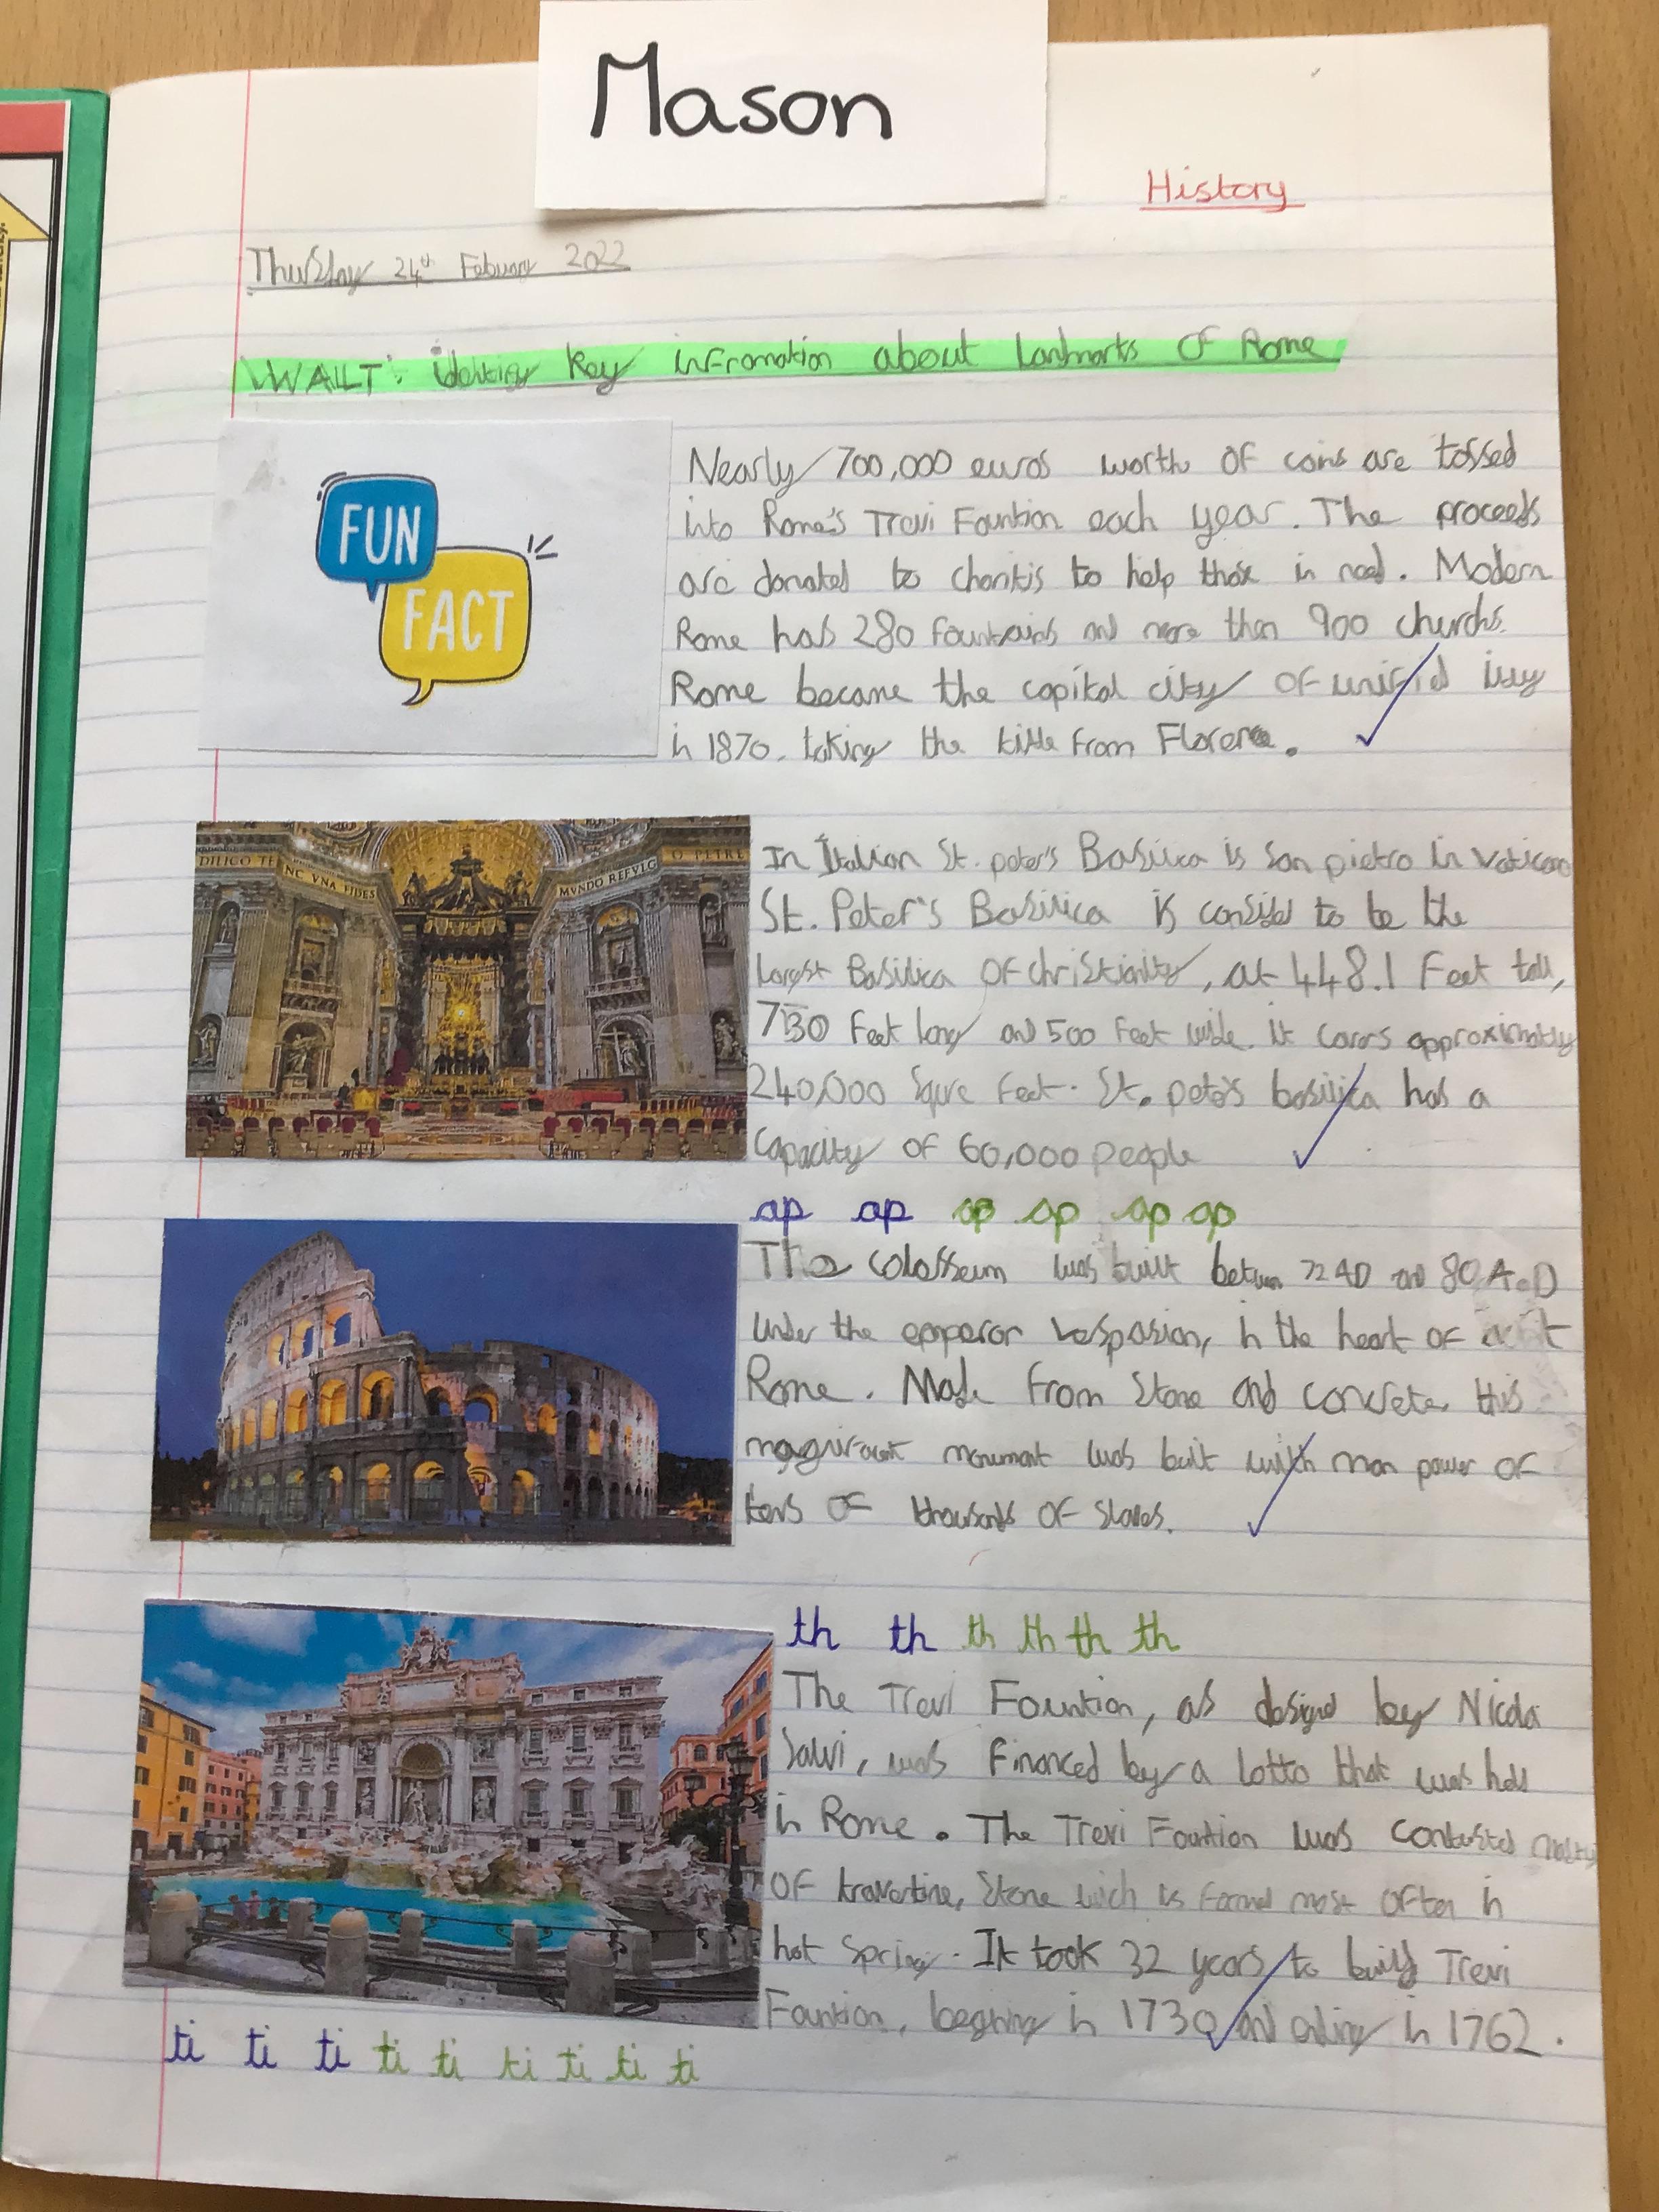 Mason
History
Thursday 24th Febuary 2022
WALT: identify key infromation about Lanmarks of Rome
FUN
FACT
Nearly 700,000 euros worth of coins are tossed
into Rome's Trevi Fountion each year. The proceeds
are donated to in need. Modern
to help those
Rome has 280 fountains and more than 900 churchs.
Rome became the capital city of unified
in 1870. taking the title from Florence.
DILICO TE
NC VNA FIDES
MVNDO REFVLG
O PETRE
In Italian St. peter's Basilica is San pietro in Vatican
St. Peter's Basilica is to be the
largest Basilica of christianity, at 448.1 Feet tall,
730 Feet long and 500 Feet wide. it covers approximatly
240,000 Squre feet. St. peter's basilica has a
capacity of 60,000 people
ap ap ap ap ap ap
The colosseum was built between 72 AD and 80 A.D
under the emperor vespasian, in the heart of
Rome. Made from Stone and concrete, this
monument was built with man power of
tens of thousands of slaves.
th th th th th th
The Trevi Fountion, as desiged by Nicola
Salvi, was financed by a Lotto that was held
in Rome. The Trevi Fountion was
of travertine, Stone wich is formed most often in
hot Spring. It took 32 years to build Trevi
Fountion, begining in 1730 and ending in 1762.
ti ti ti ti ti ti ti ti ti